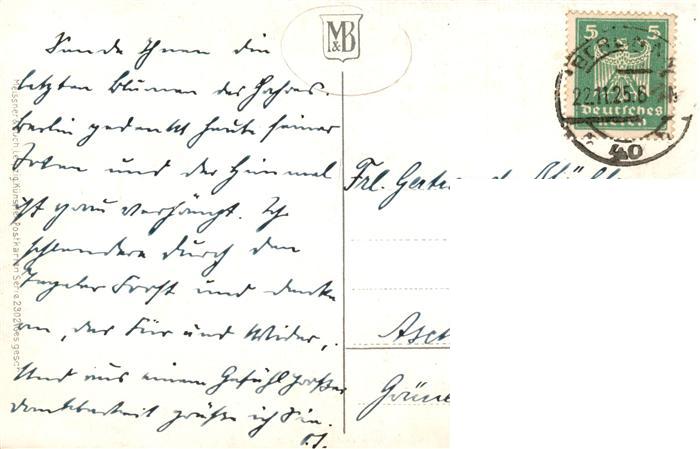 M&B
Sende Ihnen die
letzten Blumen des Jahres.
Berlin gedenkt heute seiner
Toten und der Himmel
ist grau verhängt. Ich
schlendere durch den
Tegeler Forst und denke
an, das Für und Wider,.
Und aus einem Gefühl großer
Dankbarkeit grüße ich Sie.
Meissner & Buch Leipzig Künstler-Postkarten Serie 2302
5 5
22.11.25.6
Deutsches
Reich
40
Frl.